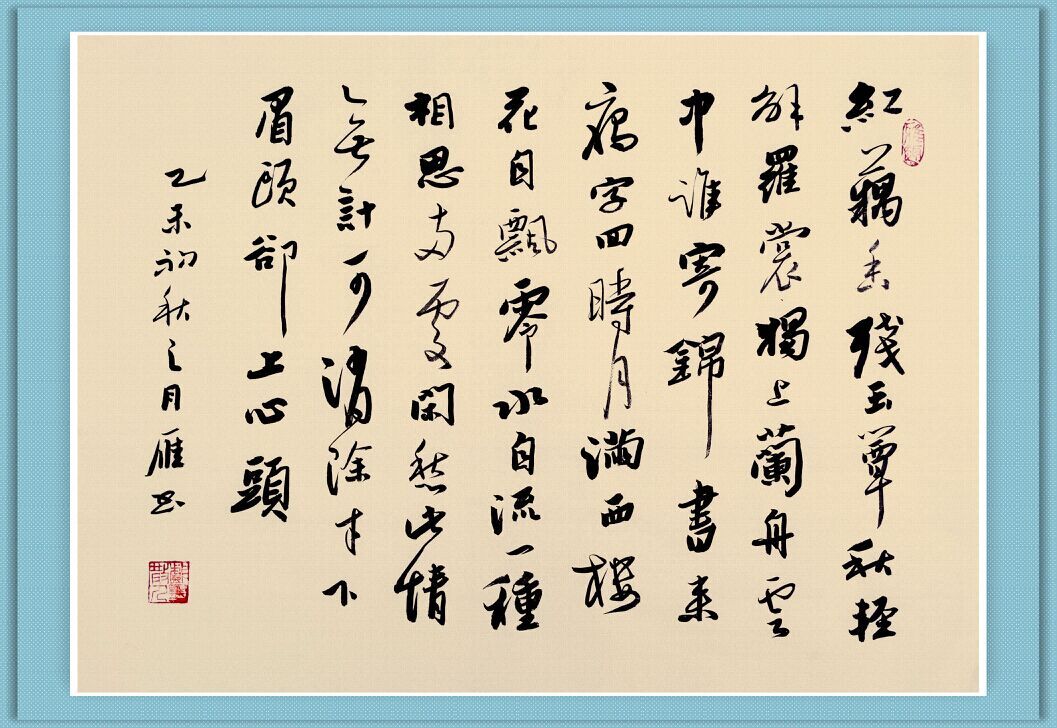 紅藕香残玉簟秋輕
解羅裳獨上蘭舟雲
中誰寄錦書来
雁字回時月滿西楼
花自飄零水自流一種
相思両處閑愁此情
無計可消除才下
眉頭卻上心頭
乙未初秋之月雁书